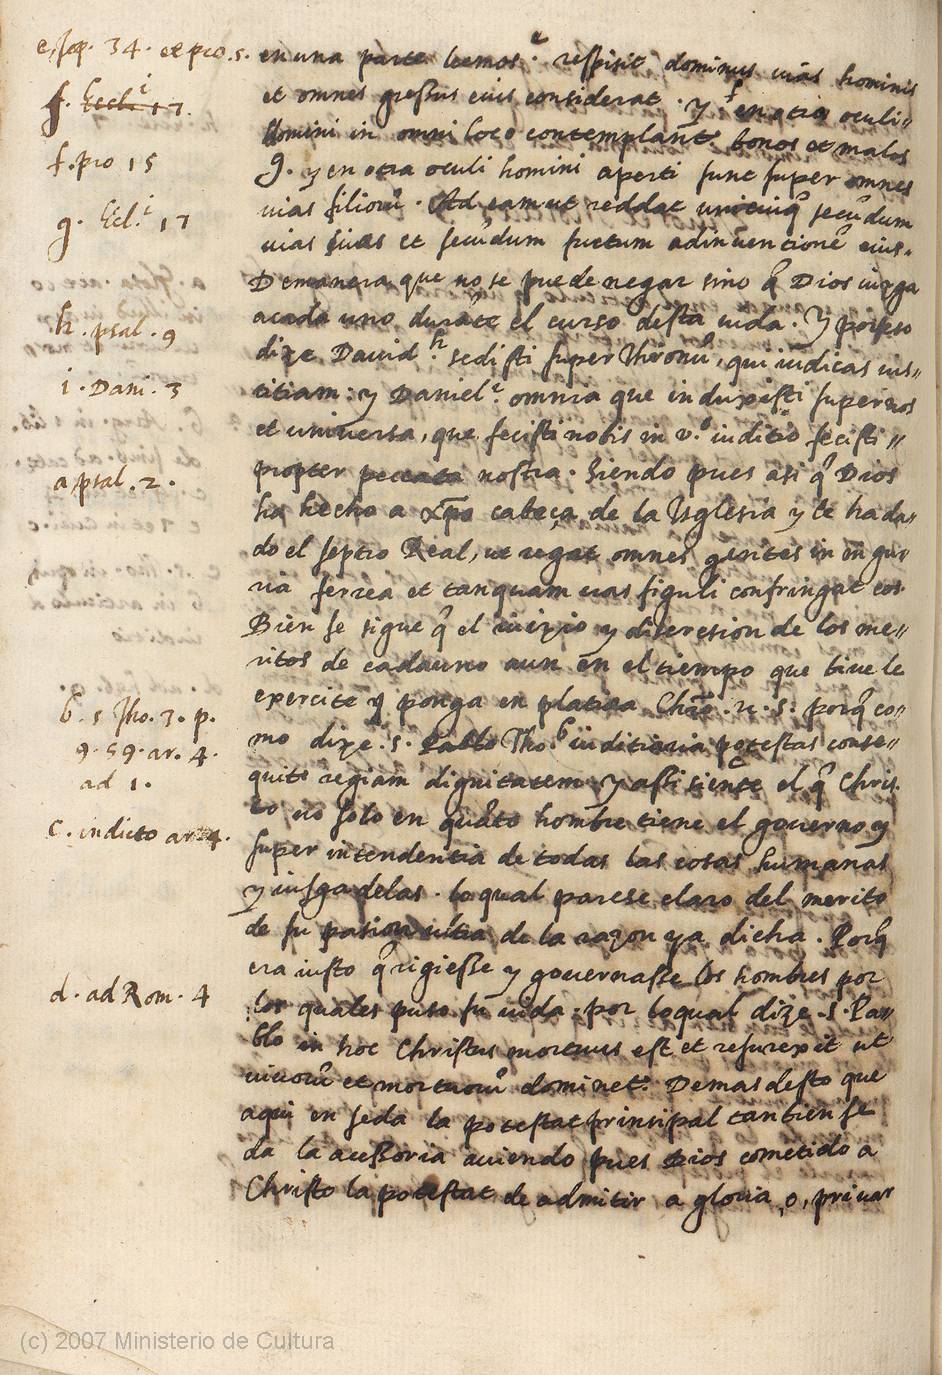 e, Job. 34. et pro. 5.
f. Eccl.i 17.
f. pro 15
g. Ecl.i 17
h. psal. 9
i. Dani. 3
a psal. 2.
b. s Tho. 3. p.
q. 59. ar. 4.
ad 1.
c. in dicto ar. 4.
d. ad Rom. 4
en una parte leemos e. respisit dominus vias hominis
et omnes gressus eius considerat. y f en otra oculi=
domini in omni loco contemplant bonos et malos
g. y en otra oculi homini aperti sunt super omnes
vias filiorũ. Ad eam ut reddat unicuiq̃ secũdum
vias suas et secũdum fuctum adinventionẽ eius.
Demanera que no se puede negar sino q̃ Dios iuzga
acada uno durãte el curso desta vida. Y por eso
dize David h. sedisti super thronũ, qui iudicas ius=
titiam: y Daniel i. omnia que induxisti super nos
et universa, que fecisti nobis in v.o iuditio fecisti=
propter peccata nostra. Siendo pues asi q̃ Dios
ha hecho a xp̃o cabeça de la Yglesia y le ha da=
do el septro Real, ut regat omnes gentes in in gu=
ria ferrea et tanquam vas figuli confringat eos.
Bien se sigue q̃ el iuizio y discresion de los me=
ritos de cadauno aun en el tiempo que bive le
exercite y ponga en platica Chr̃o. n. s. porq̃ co=
mo dize. s. Pablo Tho. b iuditiaria potestas conse=
quit regiam dignitatem y assi siente c el q̃ Chris.
to no solo en quãto hombre tiene el governo y
super intendentia de todas las cosas humanas
y iusga delas. lo qual parese claro del merito
de su pasion ultra de la razon ya dicha. Porq̃
era iusto q̃ rigiesse y governasse los hombres por
los quales puso su vida. por lo qual dize. S. Pa=
blo in hoc Christus mortuus est et resurexit ut
vivorũ et mortuorũ dominet. Demas desto que
aqui en seda la potestat prinsipal tanbien se
da la acessoria aviendo pues Dios cometido a
Christo la potestat de admitir a gloria, o, privar
(c) 2007 Ministerio de Cultura